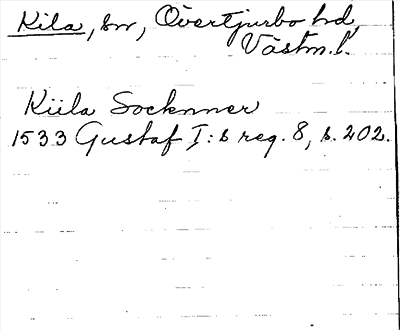 Kila, sn, Övertjurbo hd,
Västm. l.
Kiila Socknner
1533 Gustaf I:s reg. 8, s. 202.